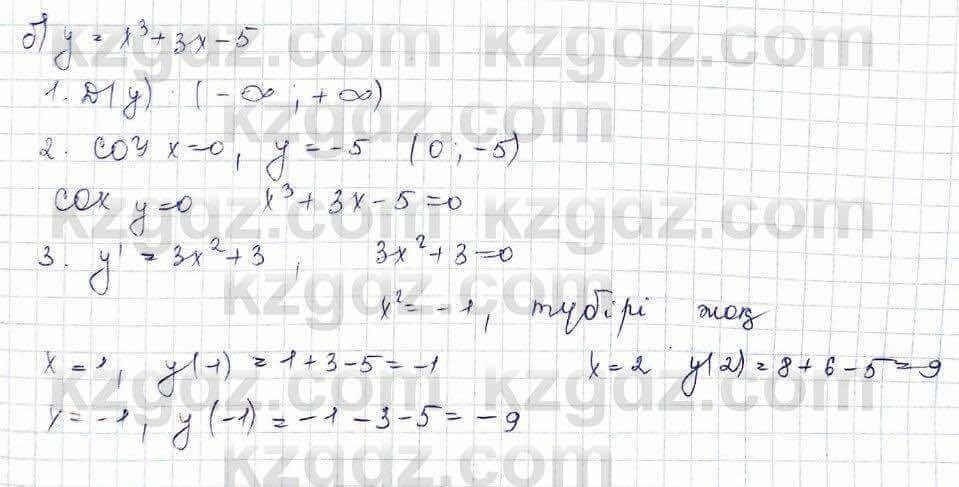 kzgdz.com kzgdz.com
б) y = x³ + 3x - 5
1. D(y) : (-∞ ; +∞)
kzgdz.com kzgdz.com
2. COY x=0, y = -5 (0 ; -5)
COX y=0 x³ + 3x - 5 = 0
kzgdz.com kzgdz.com
3. y' = 3x² + 3 , 3x² + 3 = 0
kzgdz.com kzgdz.com
x² = -1, түбірі жоқ
x = 1, y(1) = 1 + 3 - 5 = -1 x = 2 y(2) = 8 + 6 - 5 = 9
kzgdz.com kzgdz.com
x = -1, y(-1) = -1 - 3 - 5 = -9
kzgdz.com kzgdz.com